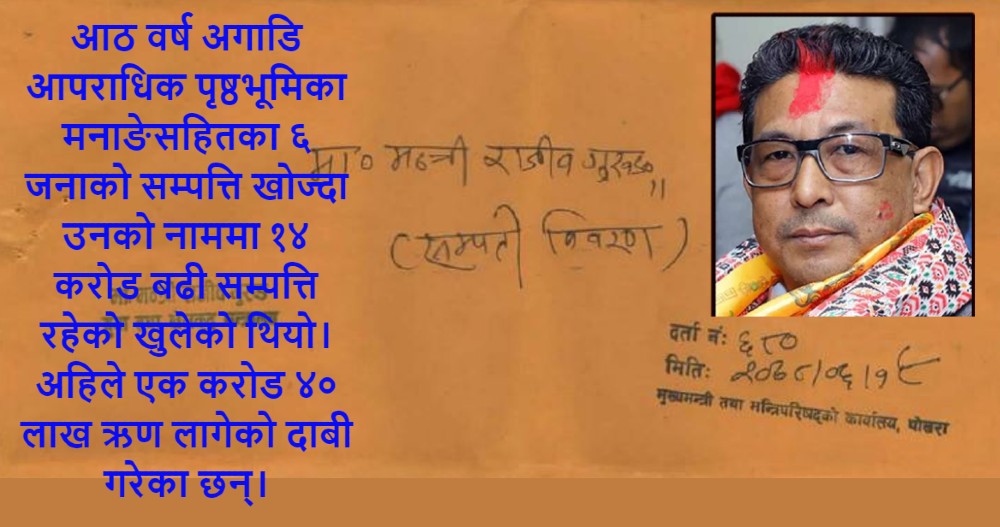 आठ वर्ष अगाडि
आपराधिक पृष्ठभूमिका
मनाङेसहितका ६
जनाको सम्पत्ति खोज्दा
उनको नाममा १४
करोड बढी सम्पत्ति
रहेको खुलेको थियो।
अहिले एक करोड ४०
लाख ऋण लागेको दाबी
गरेका छन्।
मा० मन्त्री राजीव गुरुङ
(सम्पती विवरण)
दर्ता नं: ६८०
मिति: २०७८/०६/१९
मुख्यमन्त्री तथा मन्त्रिपरिषद्को कार्यालय, पोखरा